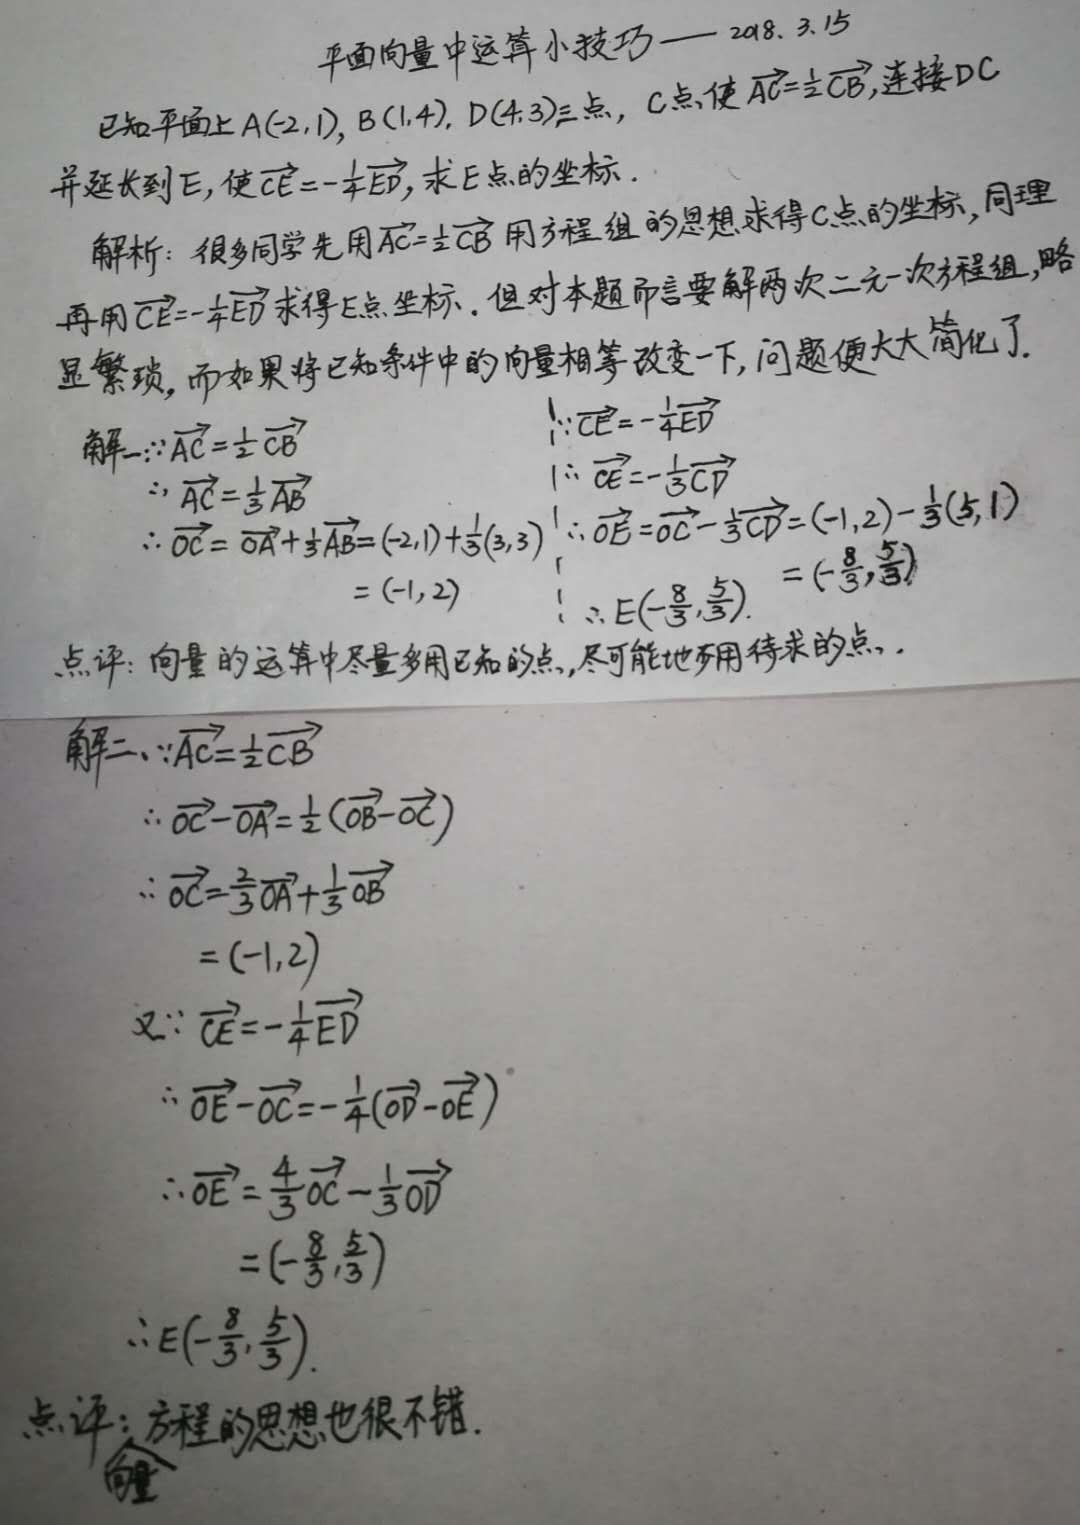 平面向量中运算小技巧——2018.3.15
已知平面上A(-2,1),B(1,4),D(4,3)三点,C点使$\overrightarrow{AC}=\frac{1}{2}\overrightarrow{CB}$,连接DC
并延长到E,使$\overrightarrow{CE}=-\frac{1}{4}\overrightarrow{ED}$,求E点的坐标.
解析:很多同学先用$\overrightarrow{AC}=\frac{1}{2}\overrightarrow{CB}$用方程组的思想求得C点的坐标,同理
再用$\overrightarrow{CE}=-\frac{1}{4}\overrightarrow{ED}$求得E点坐标.但对本题而言要解两次二元一次方程组,略
显繁琐,而如果将已知条件中的向量相等改变一下,问题便大大简化了.
解一∵$\overrightarrow{AC}=\frac{1}{2}\overrightarrow{CB}$
∴$\overrightarrow{AC}=\frac{1}{3}\overrightarrow{AB}$
∴$\overrightarrow{OC}=\overrightarrow{OA}+\frac{1}{3}\overrightarrow{AB}=(-2,1)+\frac{1}{3}(3,3)$
=(-1,2)
∵$\overrightarrow{CE}=-\frac{1}{4}\overrightarrow{ED}$
∴$\overrightarrow{CE}=-\frac{1}{3}\overrightarrow{CD}$
∴$\overrightarrow{OE}=\overrightarrow{OC}-\frac{1}{3}\overrightarrow{CD}=(-1,2)-\frac{1}{3}(5,1)$
$=(-\frac{8}{3},\frac{5}{3})$
∴$E(-\frac{8}{3},\frac{5}{3})$.
点评:向量的运算中尽量多用已知的点,尽可能地不用待求的点.
解二、∵$\overrightarrow{AC}=\frac{1}{2}\overrightarrow{CB}$
∴$\overrightarrow{OC}-\overrightarrow{OA}=\frac{1}{2}(\overrightarrow{OB}-\overrightarrow{OC})$
∴$\overrightarrow{OC}=\frac{2}{3}\overrightarrow{OA}+\frac{1}{3}\overrightarrow{OB}$
=(-1,2)
又∵$\overrightarrow{CE}=-\frac{1}{4}\overrightarrow{ED}$
∴$\overrightarrow{OE}-\overrightarrow{OC}=-\frac{1}{4}(\overrightarrow{OD}-\overrightarrow{OE})$
∴$\overrightarrow{OE}=\frac{4}{3}\overrightarrow{OC}-\frac{1}{3}\overrightarrow{OD}$
$=(-\frac{8}{3},\frac{5}{3})$
∴$E(-\frac{8}{3},\frac{5}{3})$.
点评:方程的思想也很不错.
向量